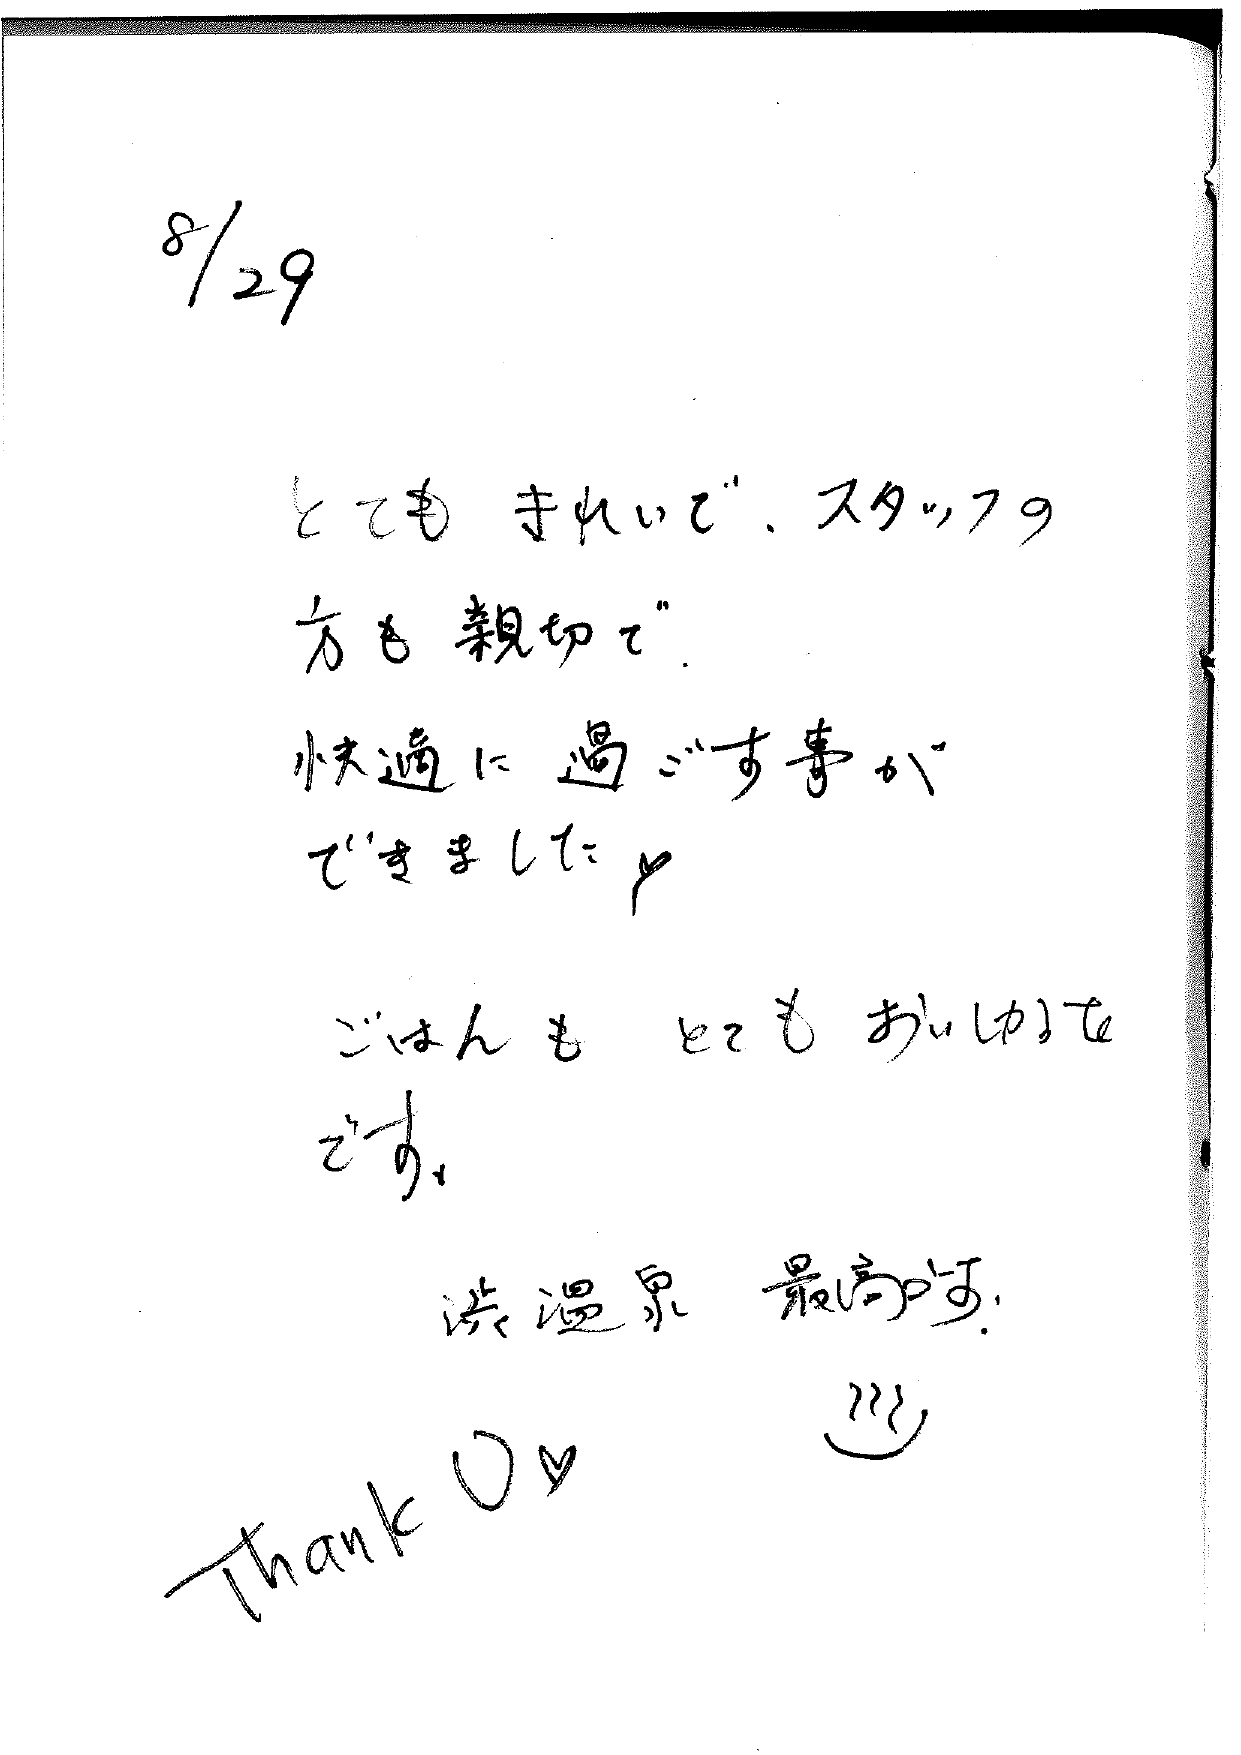 8/29
とても きれいで、スタッフの
方も 親切で、
快適に 過ごす事が
できました♡
ごはんも とても おいしかった
です。
渋温泉 最高です!
Thank U♡